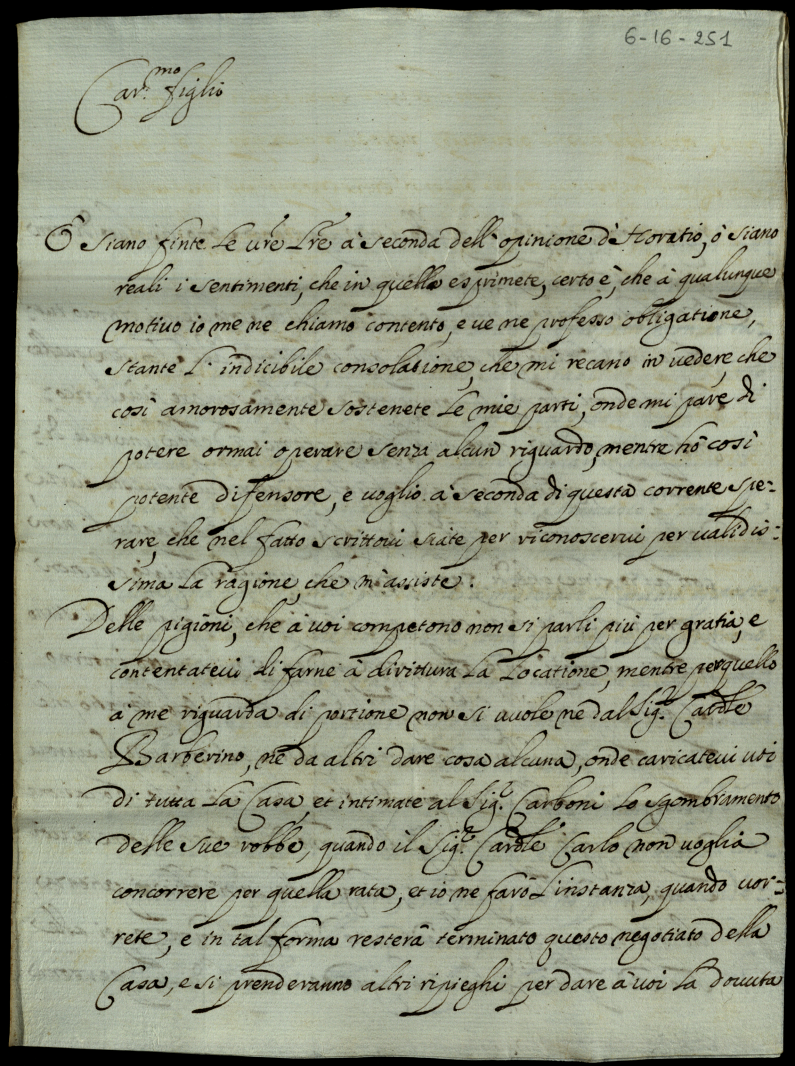 6-16-251
Car.mo figlio
Ò siano finte le vre lre à seconda dell'opinione d'Horatio, ò siano
reali i sentimenti, che in quelle esprimete, certo è, che à qualunque
motivo io me ne chiamo contento, e ve ne professo obligatione,
stante l'indicibile consolatione, che mi recano in vedere, che
così amorosamente sostenete le mie parti, onde mi pare di
potere ormai operare senza alcun riguardo, mentre hò così
potente difensore, e voglio à seconda di questa corrente spe-
rare, che nel fatto scrittovi siate per riconoscervi per validis-
sima la ragione, che m'assiste.
Delle pigioni, che à voi competono non si parli più per gratia, e
contentatevi di farne à dirittura la locatione, mentre per quello
à me riguarda di portione non si vuole nè dal Sig.r Cardle
Barberino, nè da altri dare cosa alcuna, onde caricatevi voi
di tutta la Casa, et intimate al Sig.r Carboni lo sgombramento
delle sue robbe, quando il Sig.r Cardle Carlo non voglia
concorrere per quella rata, et io ne farò l'instanza, quando vor-
rete, e in tal forma resterà terminato questo negotiato della
Casa, e si prenderanno altri ripieghi per dare à voi la dovuta